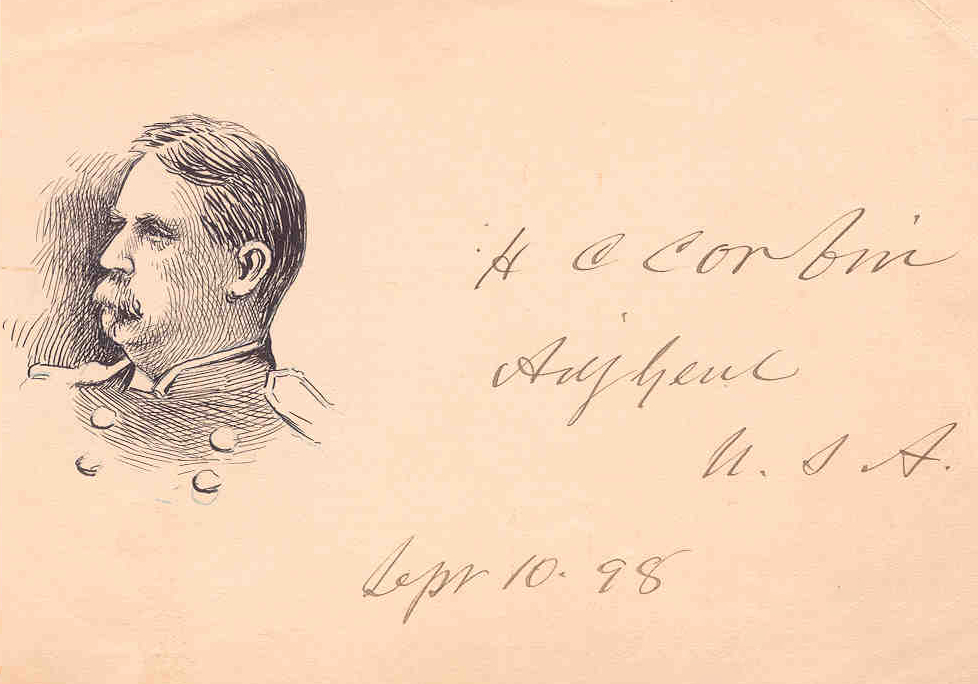 H C Corbin
Adj Genl
U. S. A.
Sept 10. 98